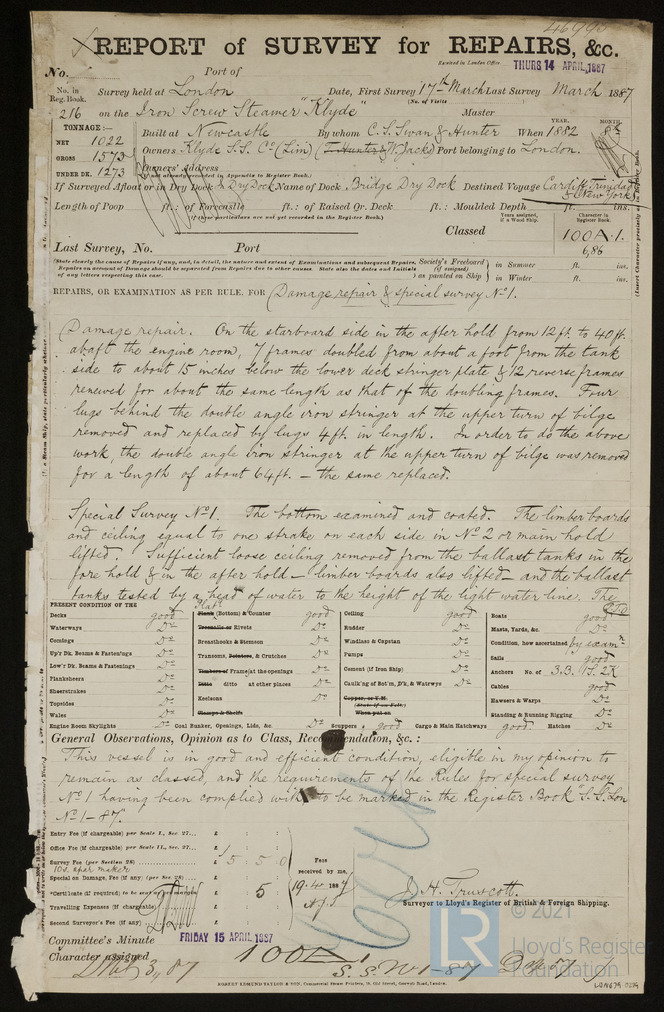 46998
REPORT of SURVEY for REPAIRS, &c.
Received in London Office THURS 14 APRIL 1887
No. Port of
No. in Reg. Book. Survey held at London Date, First Survey 17th March Last Survey March 1887
(No. of Visits)
216 on the Iron Screw Steamer "Klyde" Master
TONNAGE:—
NET 1022
GROSS 1573
UNDER DK. 1273
Built at Newcastle By whom C. S. Swan & Hunter When 1882
YEAR. MONTH.
Owners Klyde S.S. Co (Lim) (T. Hunter & W. Jacks) Port belonging to London.
Owners' Address
(if not already recorded in Appendix to Register Book.)
If Surveyed Afloat or in Dry Dock Dry Dock Name of Dock Bridge Dry Dock Destined Voyage Cardiff, Trinidad & New York
Length of Poop ft.: of Forecastle ft.: of Raised Qr. Deck ft.: Moulded Depth ft. ins.
(if these particulars are not yet recorded in the Register Book.)
Years assigned, if a Wood Ship. Character in Register Book.
Classed 100A.1.
6,86
Last Survey, No. Port
State clearly the cause of Repairs if any, and, in detail, the nature and extent of Examinations and subsequent Repairs.
Repairs on account of Damage should be separated from Repairs due to other causes. State also the dates and Initials
of any letters respecting this case.
Society's Freeboard (if assigned) as painted on Ship
in Summer ft. ins.
in Winter ft. ins.
(Insert Character precisely as in Register Book.)
REPAIRS, OR EXAMINATION AS PER RULE, FOR Damage repair & special survey No 1.
Damage repair. On the starboard side in the after hold from 12 ft. to 40 ft.
abaft the engine room, 7 frames doubled from about a foot from the tank
side to about 15 inches below the lower deck stringer plate & 12 reverse frames
renewed for about the same length as that of the doubling frames. Four
lugs behind the double angle iron stringer at the upper turn of bilge
removed and replaced by lugs 4 ft. in length. In order to do the above
work, the double angle iron stringer at the upper turn of bilge was removed
for a length of about 64 ft. — the same replaced.
Special Survey No 1. The bottom examined and coated. The limber boards
and ceiling equal to one strake on each side in No 2 or main hold
lifted. Sufficient loose ceiling removed from the ballast tanks in the
fore hold & in the after hold — limber boards also lifted — and the ballast
tanks tested by a head of water to the height of the light water line. The
PRESENT CONDITION OF THE
Decks good
Waterways Do
Comings Do
Up'r Dk. Beams & Fastenings Do
Low'r Dk. Beams & Fastenings Do
Planksheers Do
Sheerstrakes Do
Topsides Do
Wales Do
Engine Room Skylights Do
Plat'g
Plank (Bottom) & Counter good
Treenails or Rivets Do
Breasthooks & Stemson Do
Transoms, Pointers, & Crutches Do
Timbers of Frame at the openings Do
Ditto ditto at other places Do
Keelsons Do
Clamps & Shelfs
Coal Bunker, Openings, Lids, &c. Do
Ceiling good
Rudder Do
Windlass & Capstan Do
Pumps Do
Cement (if Iron Ship) Do
Caulk'ng of Bot'm, D'k, & Watrwys Do
Copper, or Y.M.
(State if on Felt)
When put on
Scuppers good
Cargo & Main Hatchways good
Boats good
Masts, Yards, &c. Do
Condition, how ascertained by examn
Sails good
Anchors No. of 3.B. 1S. 2K
Cables good
Hawsers & Warps Do
Standing & Running Rigging Do
Hatches Do
General Observations, Opinion as to Class, Recommendation, &c.:
This vessel is in good and efficient condition, eligible in my opinion to
remain as classed, and the requirements of the Rules for special survey
No 1 having been complied with to be marked in the Register Book "S.S. Lon
No 1 - 87."
Entry Fee (if chargeable) per Scale I., Sec. 27... £ : :
Office Fee (if chargeable) per Scale II., Sec. 27... £ : :
Survey Fee (per Section 28) £ 5 : 5 : 0
10s. spar maker
Special or Damage Fee (if any) (per Sec. 28) £ : :
*Certificate (if required) to be sent as per margin £ : 5 :
Travelling Expenses (if chargeable) £ : :
Second Surveyor's Fee (if any) £ : :
Fees received by me,
19.4.1887
J. H. Truscott.
Surveyor to Lloyd's Register of British & Foreign Shipping.
Committee's Minute FRIDAY 15 APRIL 1887
Character assigned 100A.1
S. S. No 1-87
ROBERT EDMUND TAYLOR & SON, Commercial Steam Printers, 19, Old Street, Goswell Road, London.
© 2021
LR
Lloyd's Register
Foundation
LON674 0274